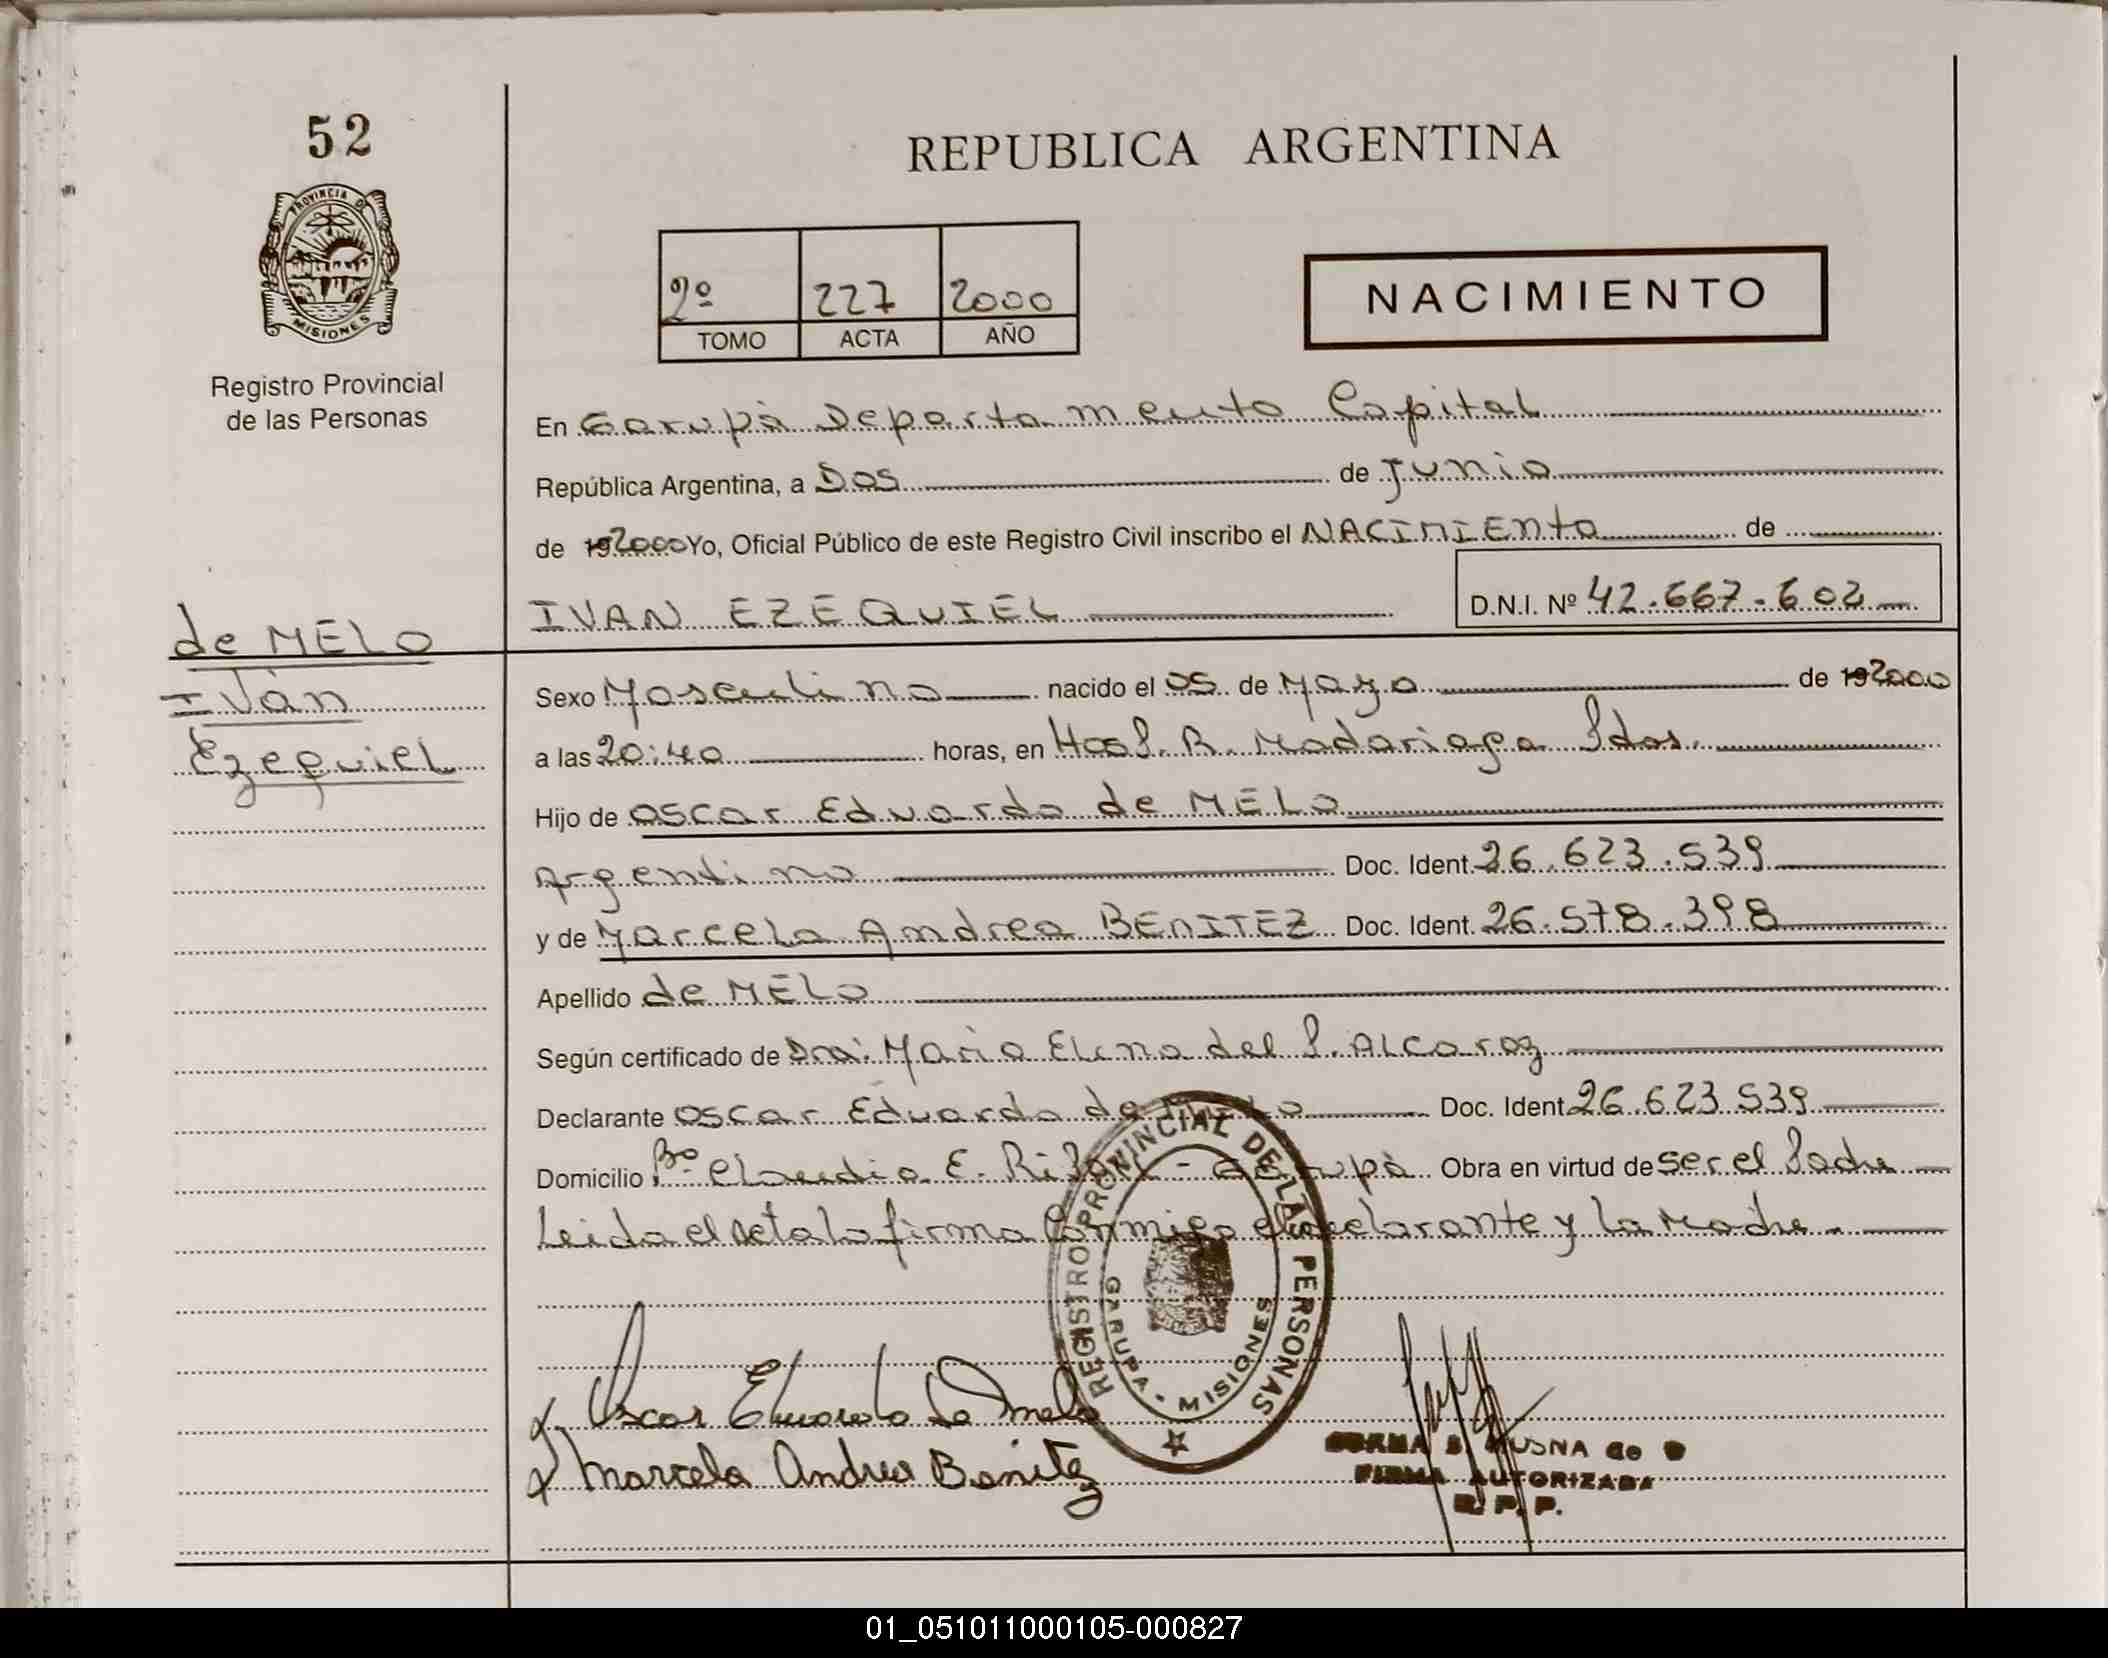 52
PROVINCIA DE
MISIONES
Registro Provincial
de las Personas
REPUBLICA ARGENTINA
2º 227 2000
TOMO ACTA AÑO
NACIMIENTO
En Garupà Departamento Capital
República Argentina, a Dos de Junio
de 192000 Yo, Oficial Público de este Registro Civil inscribo el NACIMIENTO de
IVAN EZEQUIEL D.N.I. Nº 42.667.602
de MELO
Iván
Ezequiel
Sexo Masculino nacido el 05 de Mayo de 192000
a las 20:40 horas, en Hosp. R. Madariaga Pdas.
Hijo de Oscar Eduardo de MELO
Argentino Doc. Ident. 26.623.539
y de Marcela Andrea BENITEZ Doc. Ident. 26.578.398
Apellido de MELO
Según certificado de Dra. Maria Elena del P. ALCaraz
Declarante Oscar Eduardo de Melo Doc. Ident 26.623.539
Domicilio Bº Claudia E. - Garupà Obra en virtud de ser el Padre
Leida el acta la firma conmigo el declarante y la Madre.
REGISTRO PROVINCIAL DE LAS PERSONAS
GARUPA - MISIONES
Oscar Eduardo De Melo
Marcela Andrea Benitez
FIRMA AUTORIZADA
R. P. P.
01_051011000105-000827